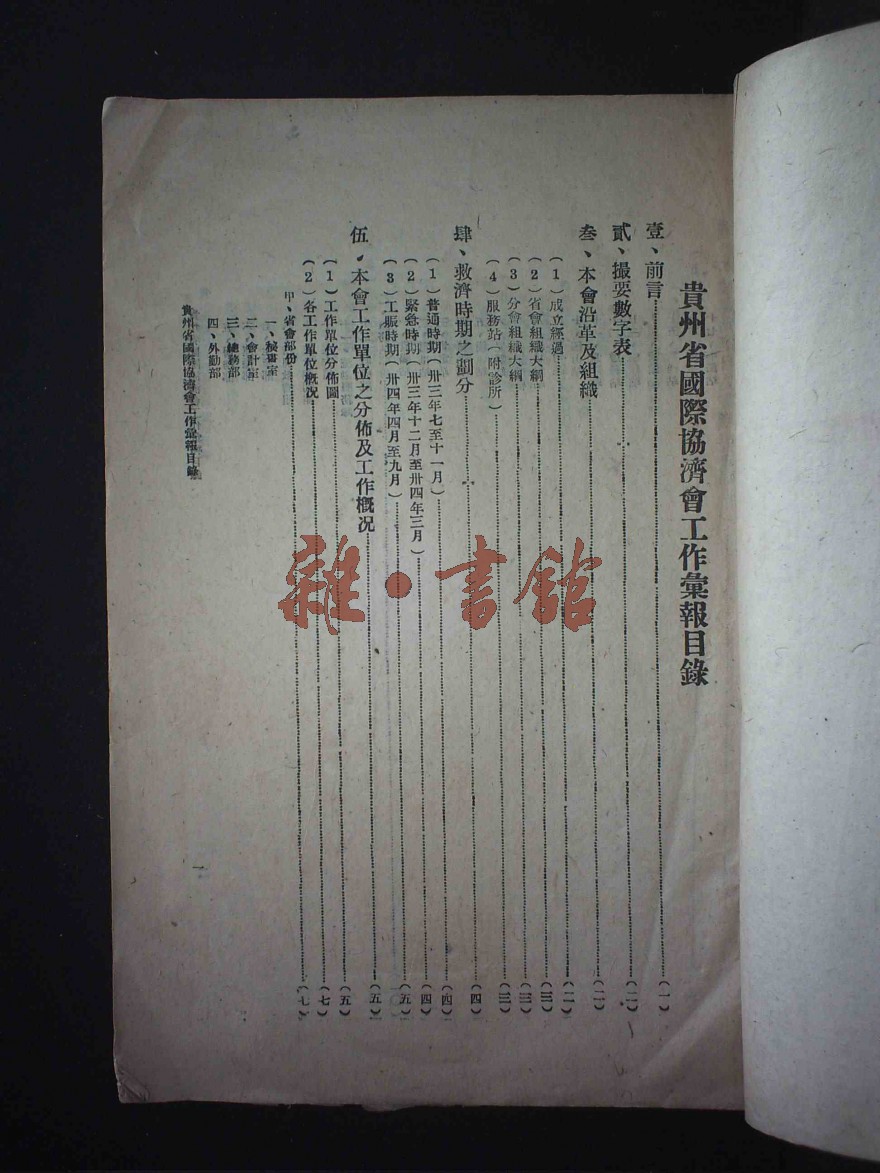 貴州省國際協濟會工作彙報目錄
壹、前言(一)
貳、撮要數字表(二)
叁、本會沿革及組織(二)
(1)成立經過(二)
(2)省會組織大綱(三)
(3)分會組織大綱(三)
(4)服務站(附診所)(三)
肆、救濟時期之劃分(四)
(1)普通時期(卅三年七至十一月)(四)
(2)緊急時期(卅三年十二月至卅四年三月)(四)
(3)工賑時期(卅四年四月至九月)(五)
伍、本會工作單位之分佈及工作概況(五)
(1)工作單位分佈圖(五)
(2)各工作單位概況(七)
甲、省會部份(七)
一、秘書室
二、會計室
三、總務部
四、外勤部
貴州省國際協濟會工作彙報目錄
一
雜·書館